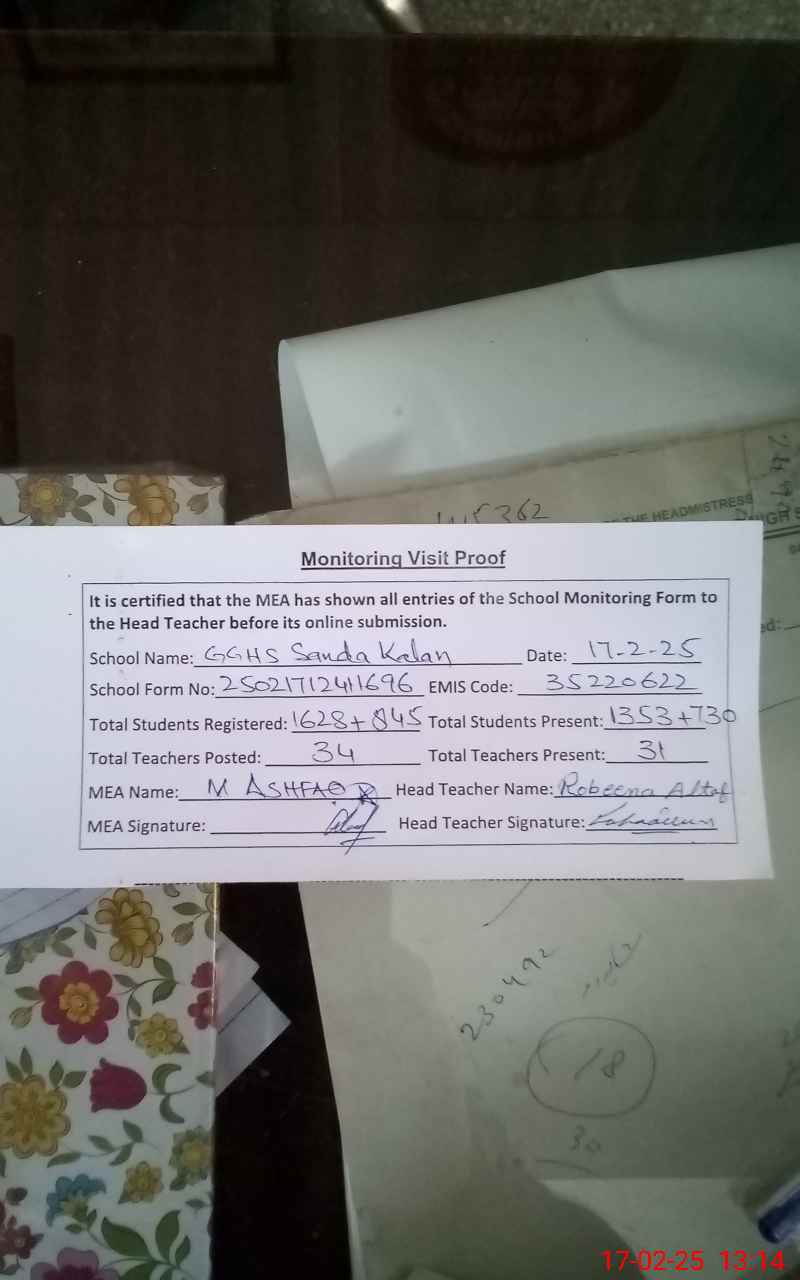 W5362
THE HEADMISTRESS
IGH S
ed:
Monitoring Visit Proof
It is certified that the MEA has shown all entries of the School Monitoring Form to
the Head Teacher before its online submission.
School Name: GGHS Sanda Kalan Date: 17-2-25
School Form No: 25021712411696 EMIS Code: 35220622
Total Students Registered: 1628+845 Total Students Present: 1353+730
Total Teachers Posted: 34 Total Teachers Present: 31
MEA Name: M ASHFAQ Head Teacher Name: Robeena Altaf
MEA Signature: Head Teacher Signature:
230492
18
30
17-02-25 13:14